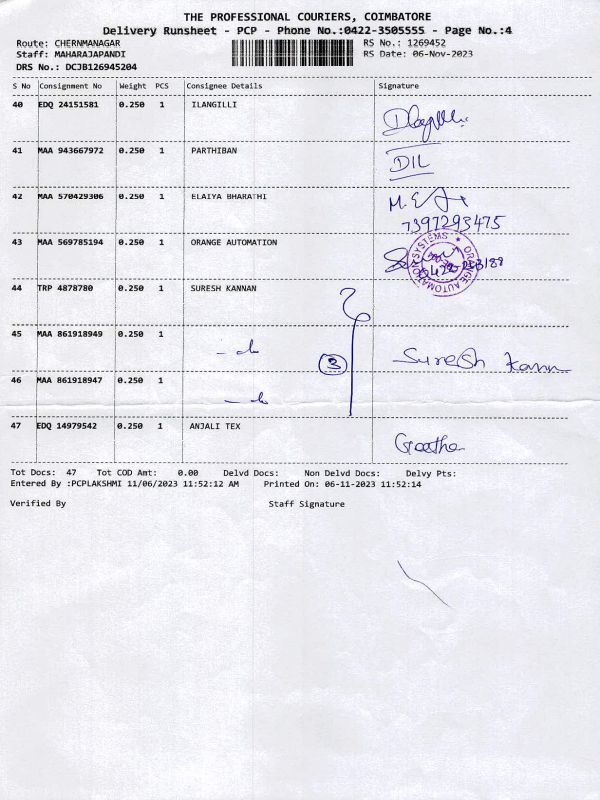 THE PROFESSIONAL COURIERS, COIMBATORE
Delivery Runsheet - PCP - Phone No.:0422-3505555 - Page No.:4
Route: CHERNMANAGAR RS No.: 1269452
Staff: MAHARAJAPANDI RS Date: 06-Nov-2023
DRS No.: DCJB126945204
S No Consignment No Weight PCS Consignee Details Signature
40 EDQ 24151581 0.250 1 ILANGILLI
41 MAA 943667972 0.250 1 PARTHIBAN DIL
42 MAA 570429306 0.250 1 ELAIYA BHARATHI M.E
7397293475
43 MAA 569785194 0.250 1 ORANGE AUTOMATION ORANGE AUTOMATION SYSTEMS
44 TRP 4878780 0.250 1 SURESH KANNAN
45 MAA 861918949 0.250 1 3 Suresh Kannn
46 MAA 861918947 0.250 1
47 EDQ 14979542 0.250 1 ANJALI TEX Geetha
Tot Docs: 47 Tot COD Amt: 0.00 Delvd Docs: Non Delvd Docs: Delvy Pts:
Entered By :PCPLAKSHMI 11/06/2023 11:52:12 AM Printed On: 06-11-2023 11:52:14
Verified By Staff Signature